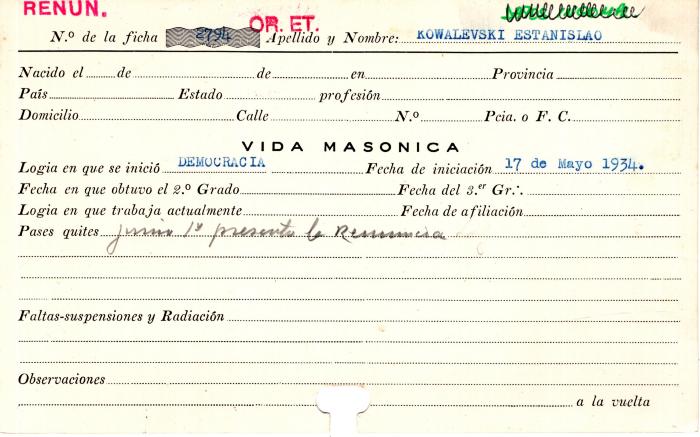 RENUN.
OR. ET.
N.º de la ficha 2794 Apellido y Nombre: KOWALEVSKI ESTANISLAO
Nacido el de de en Provincia
País Estado profesión
Domicilio Calle N.º Pcia. o F. C.
VIDA MASONICA
Logia en que se inició DEMOCRACIA Fecha de iniciación 17 de Mayo 1934.
Fecha en que obtuvo el 2.º Grado Fecha del 3.er Gr∴
Logia en que trabaja actualmente Fecha de afiliación
Pases quites junio 1º presento la Renuncia
Faltas-suspensiones y Radiación
Observaciones
a la vuelta